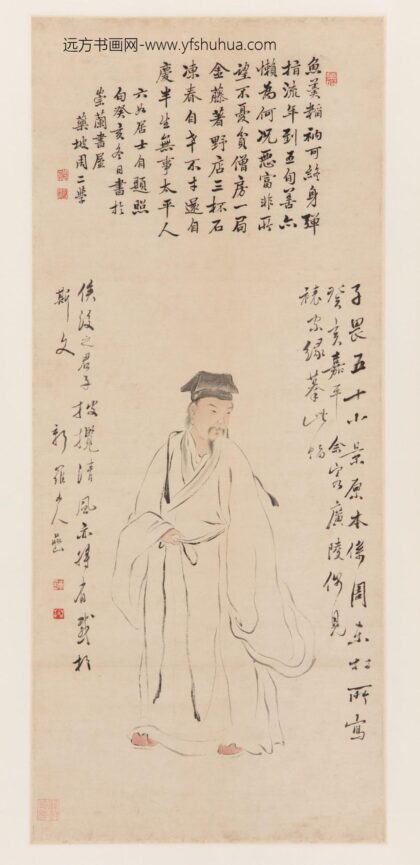 远方书画网-www.yfshuhua.com
魚羹稻衲可終身弹
指流年到五旬善亦
懶為何况惡富非所
望不憂貧僧房一局
金藤著野店三杯石
凍春自幸不才還自
慶半生無事太平人
六如居士自題照
句癸亥冬日書於
崇蘭書屋
藥坡周二學
子畏五十小景原本係周東村所寫
癸亥嘉平余客廣陵偶見
裱家緣摹此幅
俟後之君子披攬清風亦將有感於
斯文 新羅山人喦